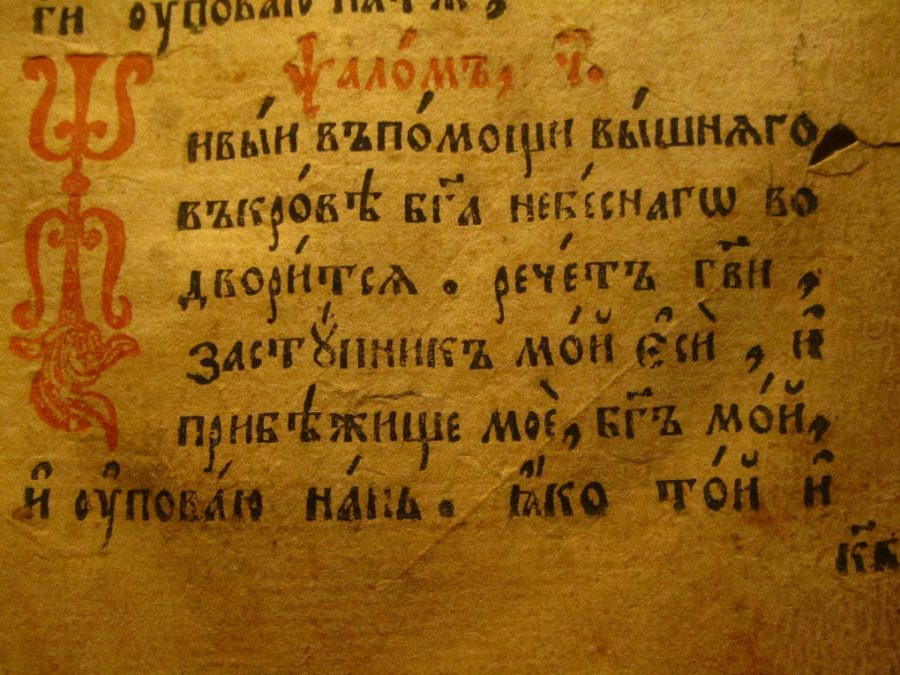 ги оуповаю на тѧ,
Ѱало́мъ, ч҃.
Живы́и въпо́мощи вы́шнѧго
въкро́вѣ бг҃а небе́снагѡ во
двори́тсѧ . рече́тъ гв҃и ,
засту́пникъ мо́й є҆сѝ , и҆
прибѣ́жище моѐ, бг҃ъ мо́й,
и҆ оу҆пова́ю на́нь . ꙗ҆́ко то́й и҆